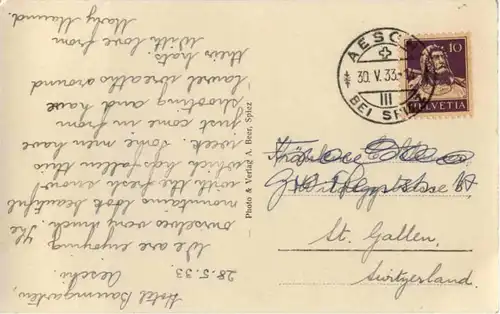 Hotel Baumgarten,
Aeschi.
28.5.33
We are enjoying
ourselves very much. The
mountains look beautiful
with the fresh snow
which has fallen this
week. Some men have
just come in from
shooting and have
laurel wreaths around
their hats.
With love from
Mary
Photo & Verlag A. Beer, Spiez
AESCHI
30. V. 33.
III
BEI SPIEZ
10
HELVETIA
Fräulein
St. Gallen.
Switzerland.